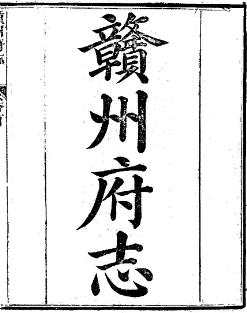 贛州府志